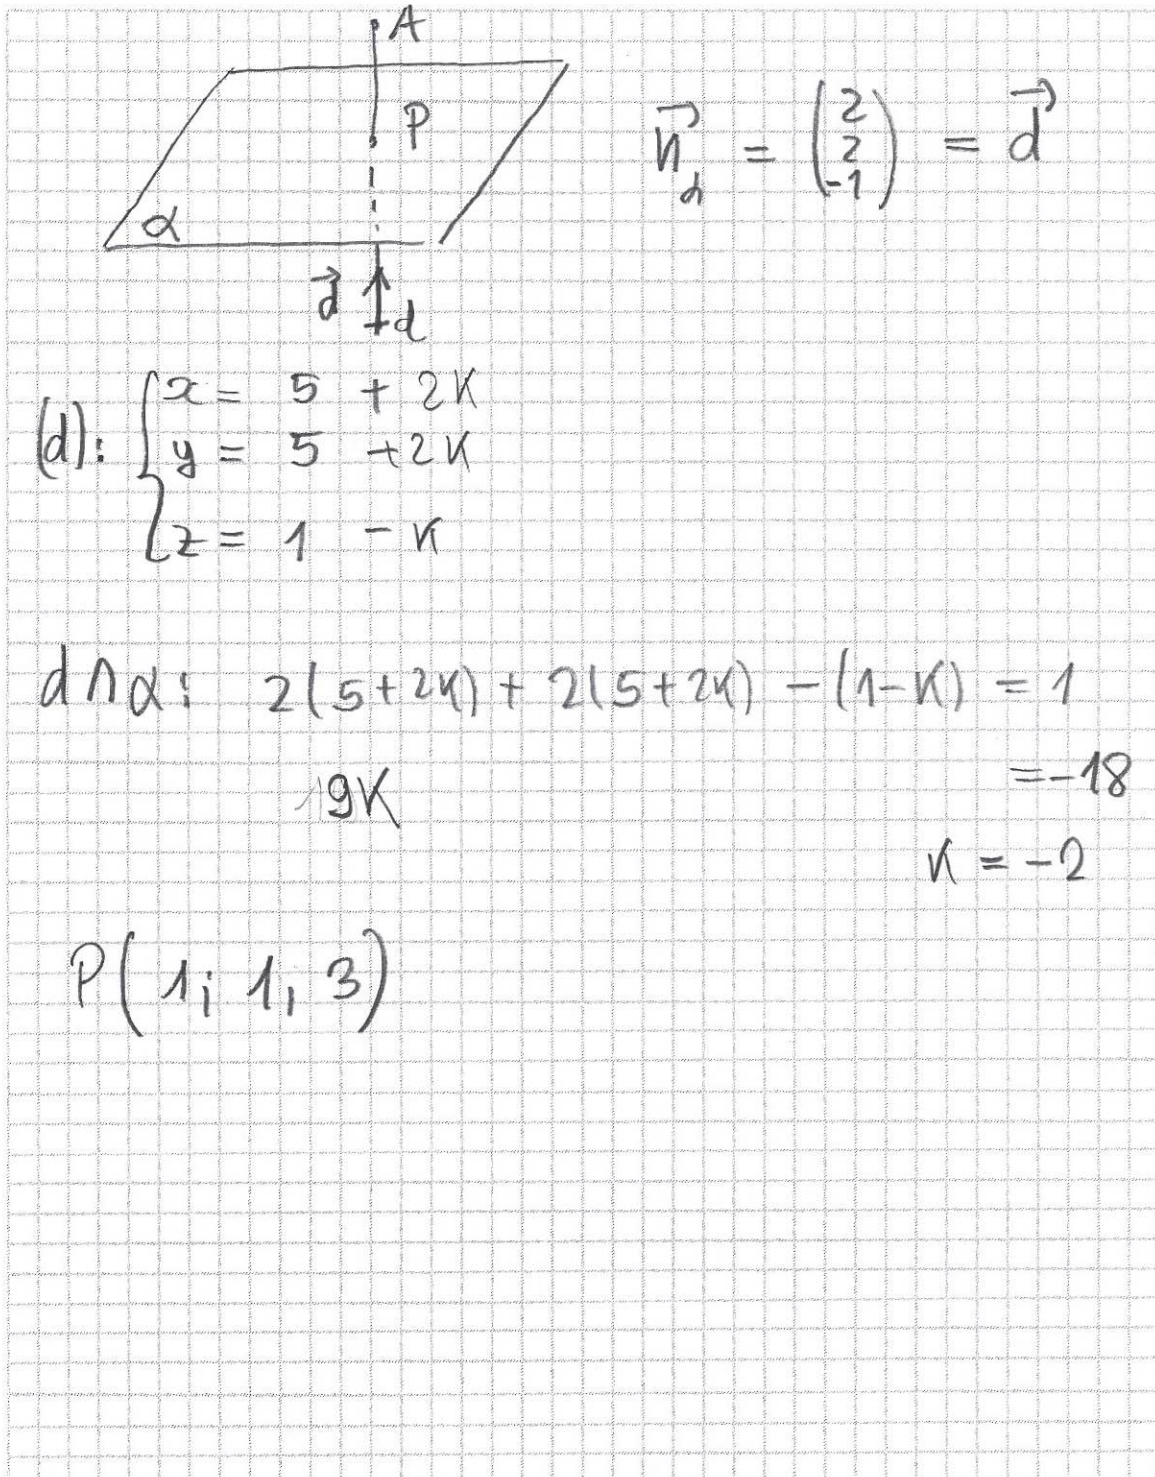 A
P
α
n⃗_α = (2 2 -1) = d⃗
d⃗ d
(d): { x = 5 + 2K
y = 5 + 2K
z = 1 - K
d ∩ α: 2(5+2K) + 2(5+2K) - (1-K) = 1
9K = -18
K = -2
P(1; 1, 3)